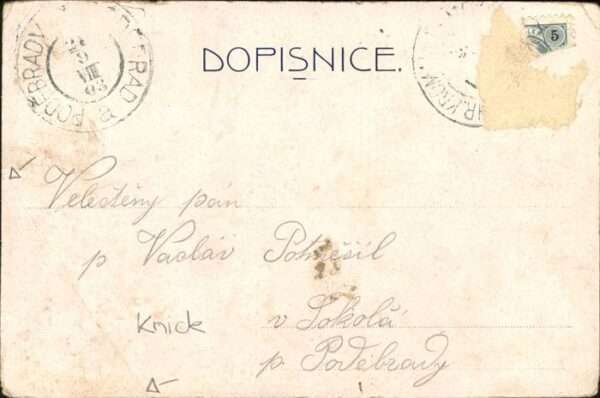 DOPISNICE.
PODĚBRADY
VIII
03
5
Velectěný pán
p Vaclav
v Sokolči
p. Poděbrady
Knick